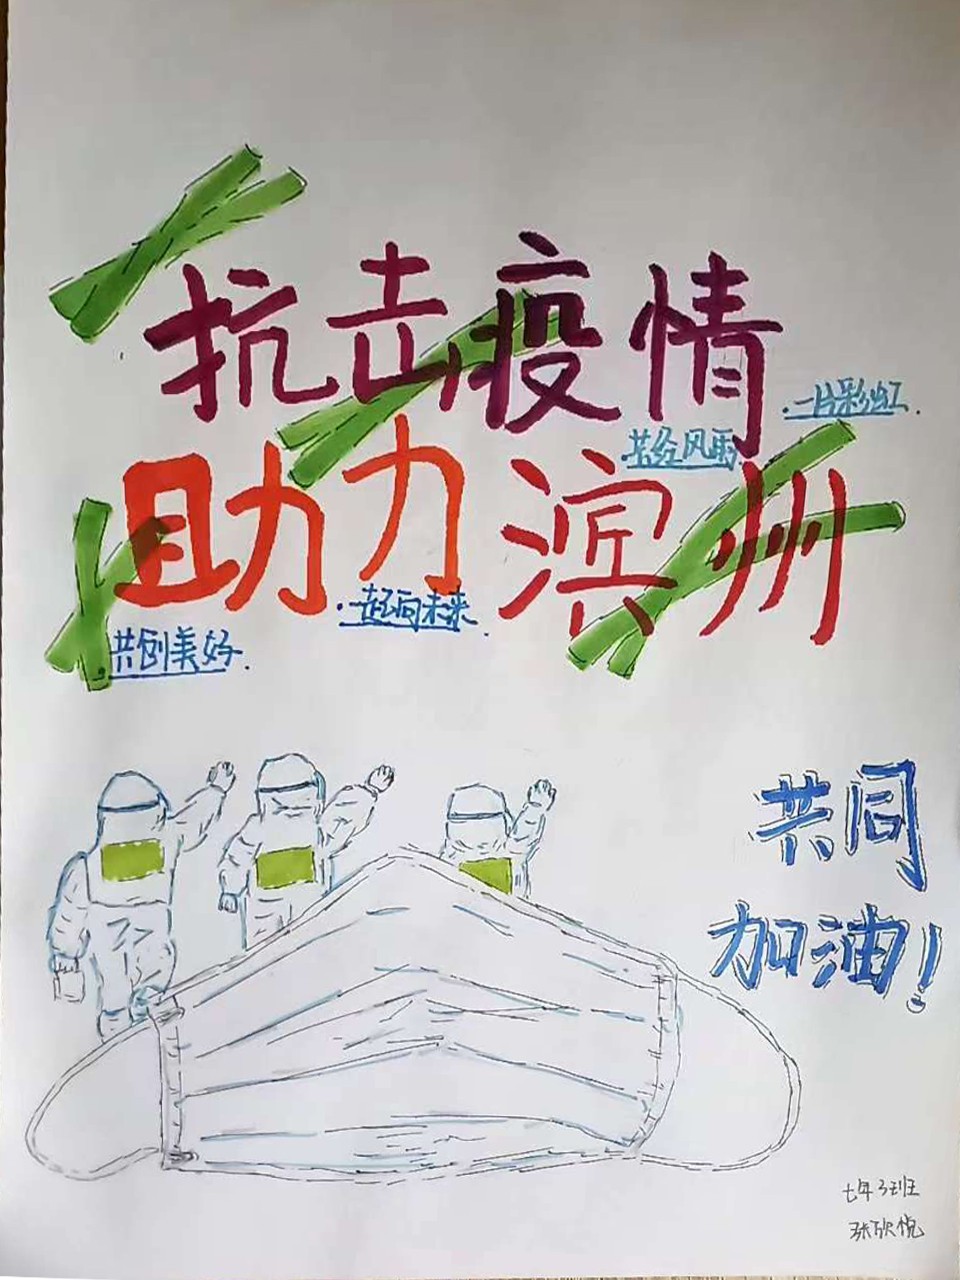 抗击疫情
一片彩虹.
共经风雨
助力滨州
一起向未来.
共创美好.
共同
加油!
七年3班
张欣悦